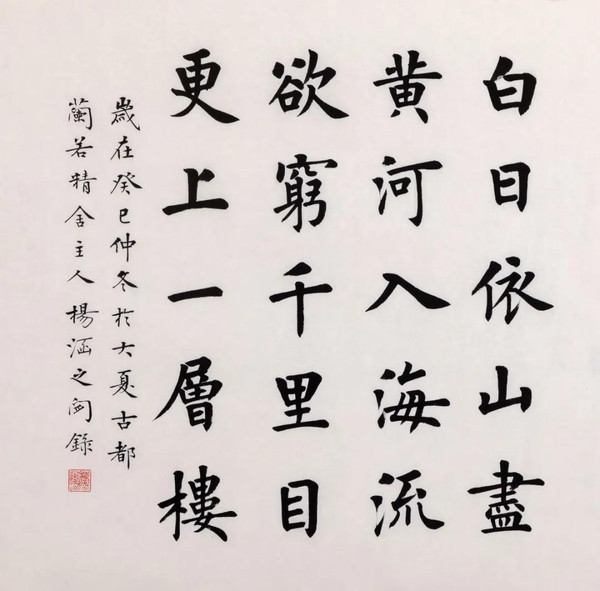 白日依山盡
黄河入海流
欲窮千里目
更上一層樓
歲在癸巳仲冬於大夏古都
蘭若精舍主人楊涵之敬錄